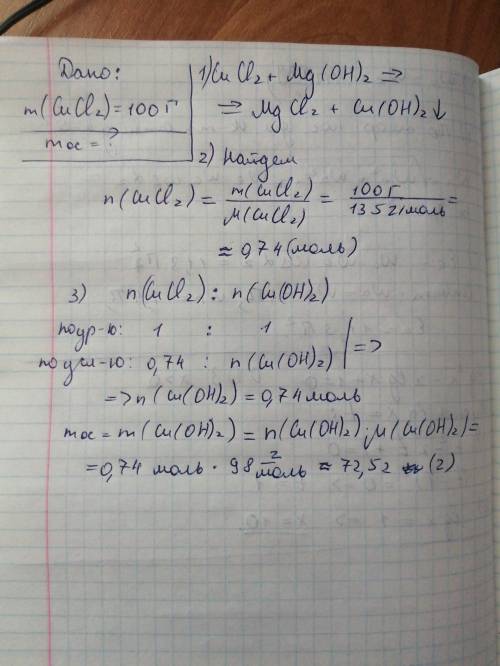 Дано:
m(CuCl₂)=100г
mос=?
1) CuCl₂ + Mg(OH)₂ ⇒
⇒ MgCl₂ + Cu(OH)₂↓
2) Найдем
n(CuCl₂) = m(CuCl₂)/M(CuCl₂) = 100г/135г/моль =
≈ 0,74 (моль)
3) n(CuCl₂) : n(Cu(OH)₂)
по ур-ю: 1 : 1
по усл-ю: 0,74 : n(Cu(OH)₂) | =>
=> n(Cu(OH)₂) = 0,74 моль
mос = m(Cu(OH)₂) = n(Cu(OH)₂)·M(Cu(OH)₂) =
= 0,74 моль · 98 г/моль ≈ 72,52 (г)